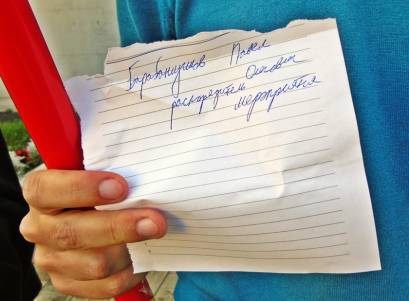 Барабанщиков Павел
Олегович
распорядитель
мероприятия